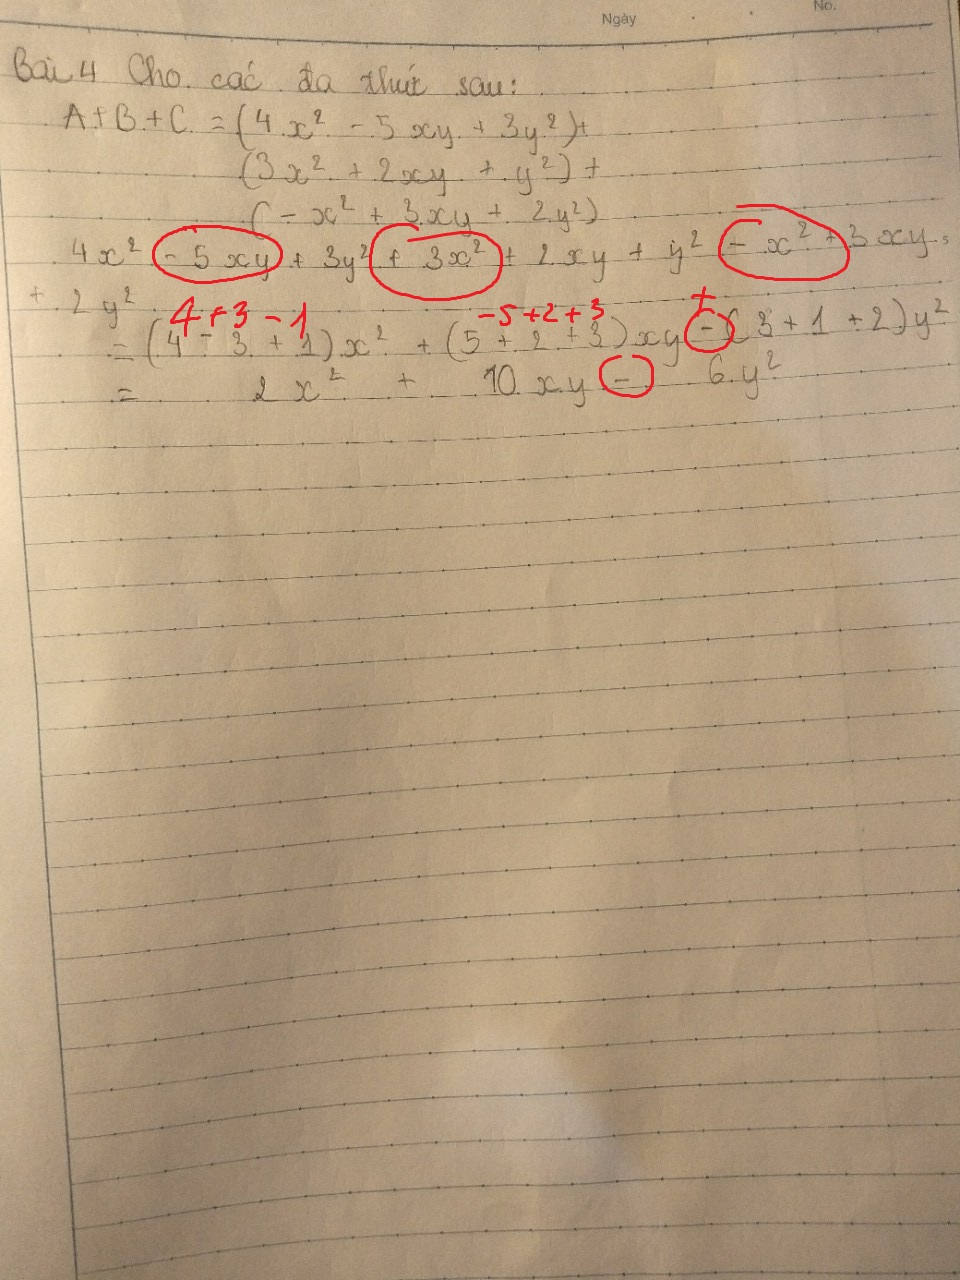 Ngày
No.
Bài 4 Cho các đa thức sau:
A+B+C = (4x² - 5xy + 3y²)+
(3x² + 2xy + y²) +
(-x² + 3xy + 2y²)
4x² - 5xy + 3y² + 3x² + 2xy + y² - x² + 3xy
+ 2y²
4+3-1 -5+2+3 +
= (4 - 3 + 1)x² + (5 + 2 + 3)xy - (3 + 1 + 2)y²
= 2x² + 10xy - 6y²